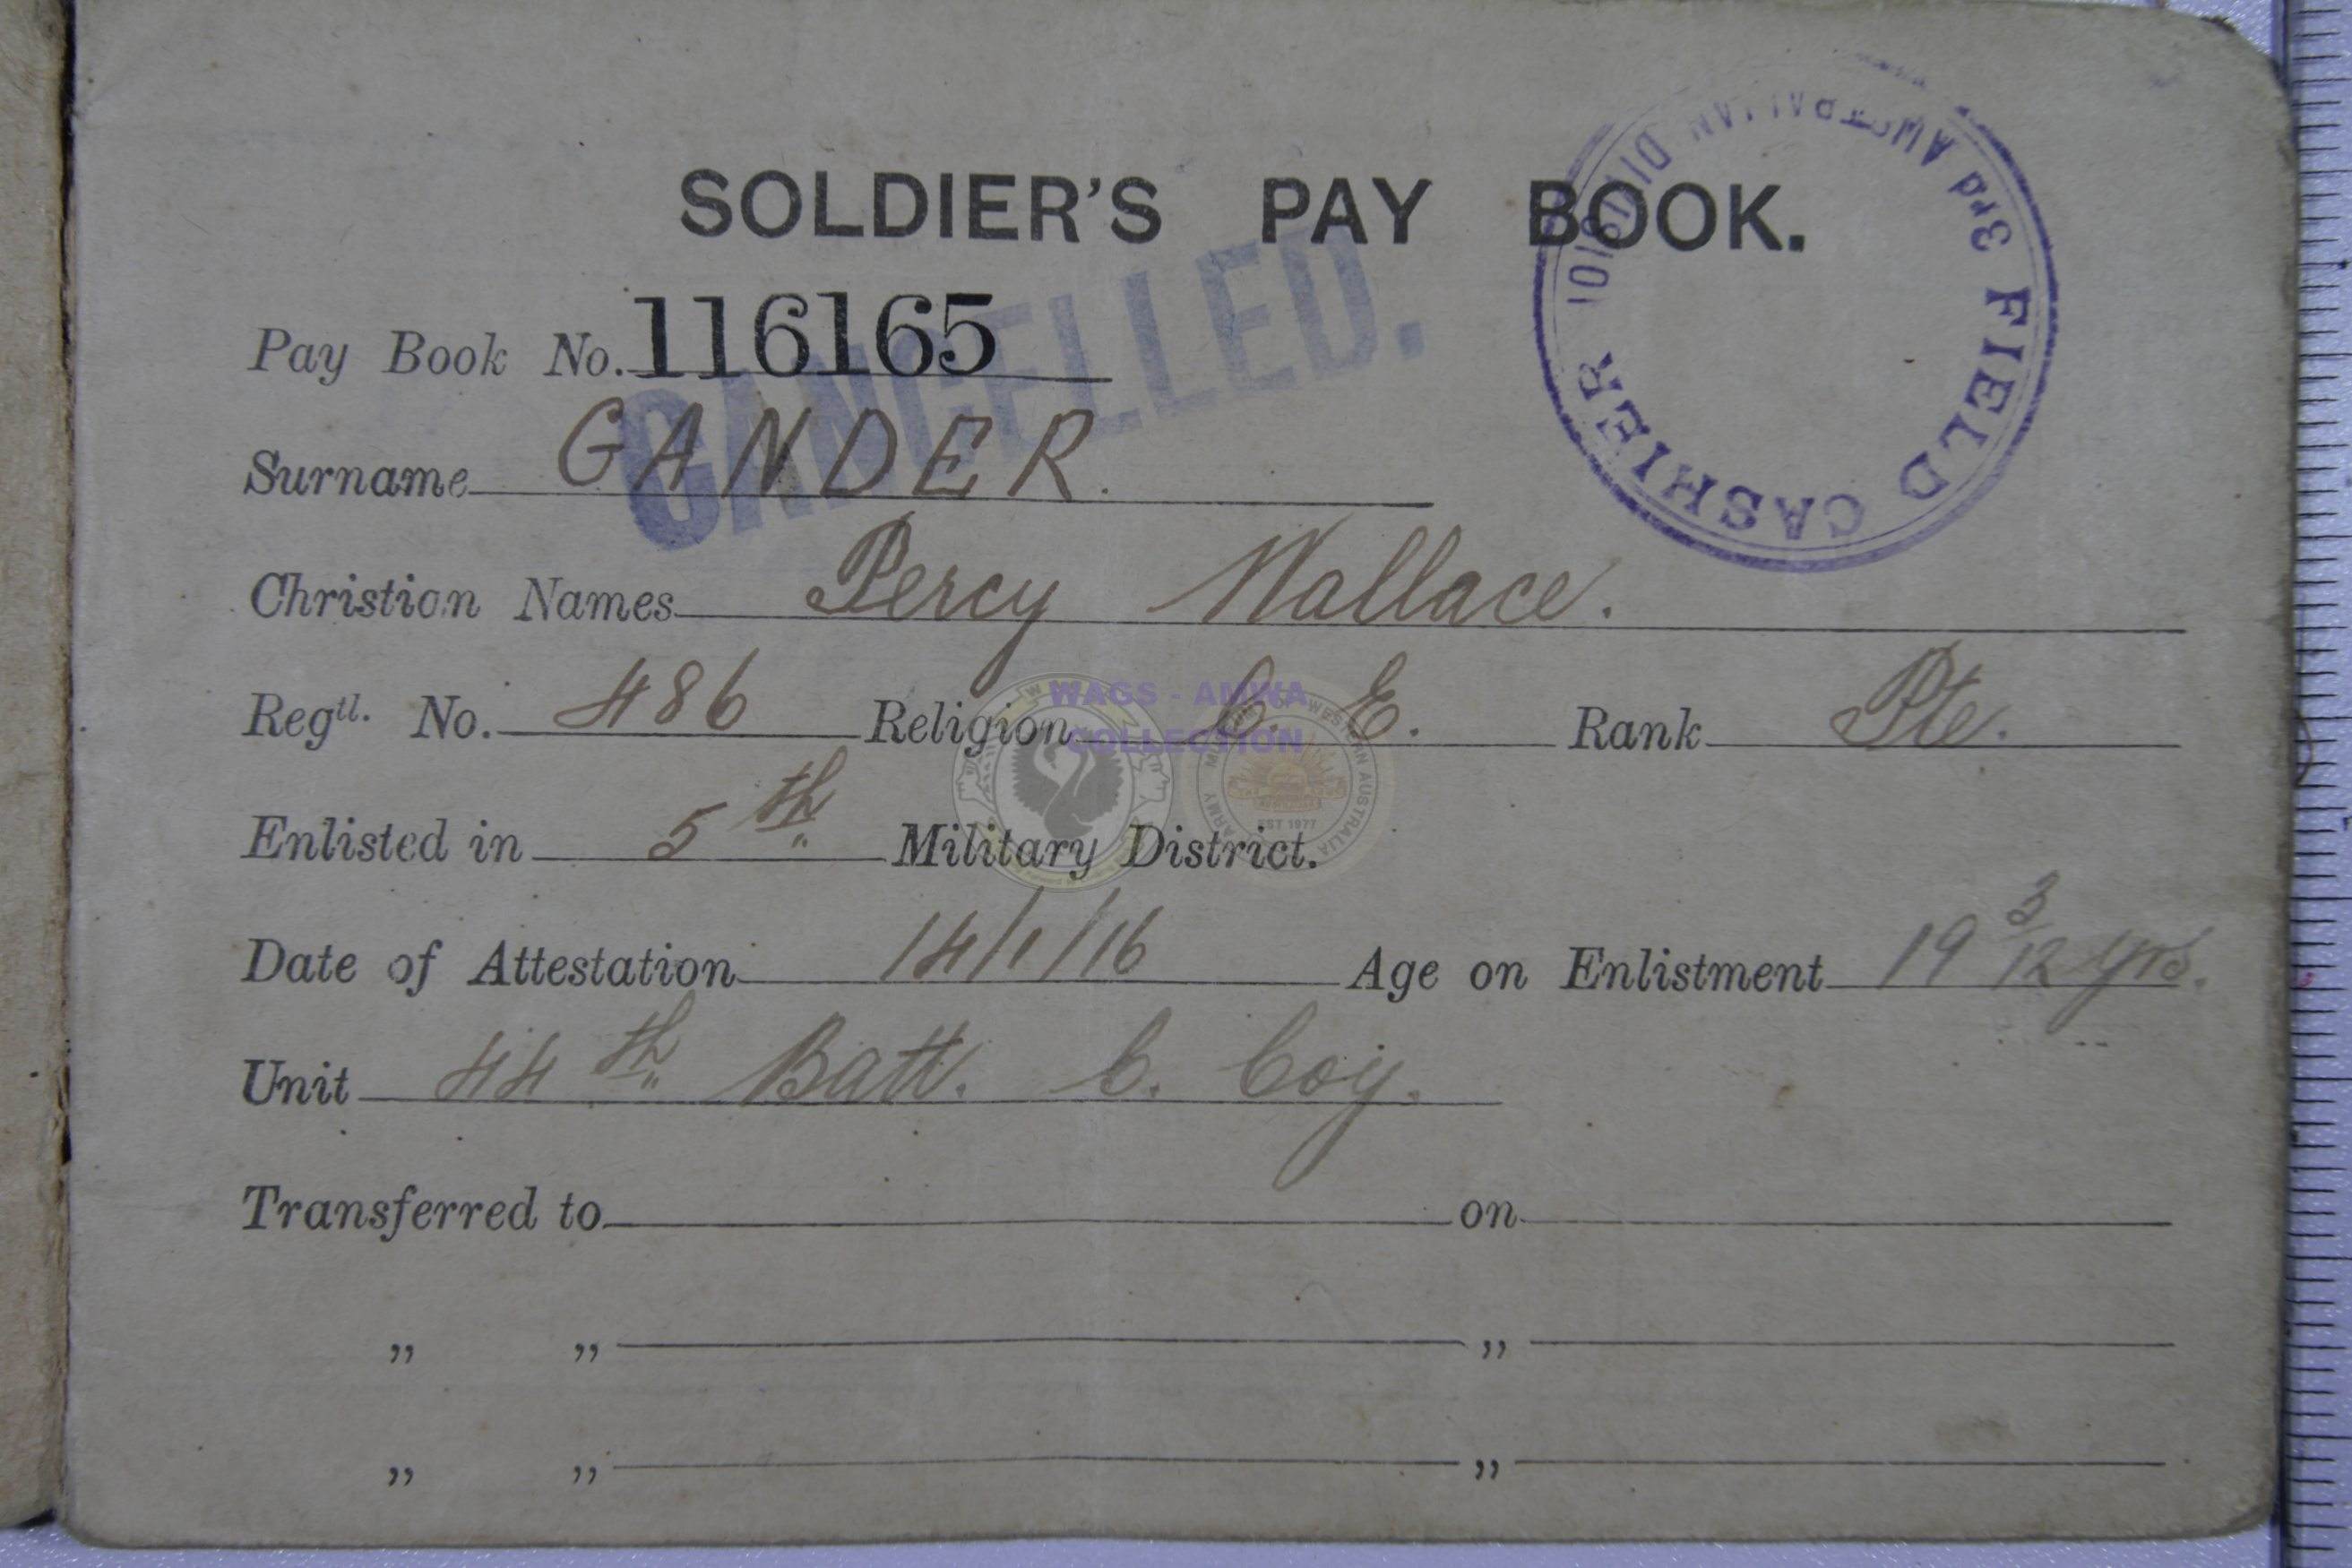 SOLDIER'S PAY BOOK.
3rd AUSTRALIAN DIVISION
FIELD CASHIER
Pay Book No. 116165
CANCELLED.
Surname GANDER.
Christian Names Percy Wallace.
Regtl. No. 486 Religion C. E. Rank Pte.
WAGS - AMWA
COLLECTION
Enlisted in 5th Military District.
ARMY WESTERN AUSTRALIA
EST 1977
Date of Attestation 14/1/16 Age on Enlistment 19 3/12 yrs.
Unit 44th Batt. C. Coy.
Transferred to on
„ „ „
„ „ „